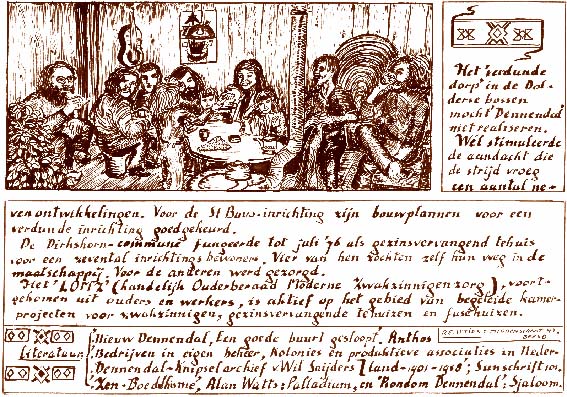 Het 'verdunde
dorp' in de Dol-
derse bossen
mocht Dennendal
niet realiseren.
Wel stimuleerde
de aandacht die
de strijd vroeg
een aantal ne-
venontwikkelingen. Voor de St Bavo-inrichting zijn bouwplannen voor een
verdunde inrichting goedgekeurd.
De Dirkshorn-commune fungeerde tot juli '76 als gezinsvervangend tehuis
voor een zevental inrichtingsbewoners. Vier van hen zochten zelf hun weg in de
maatschappij. Voor de anderen werd gezorgd.
Het 'LOMZ' (Landelijk Ouderberaad Moderne Zwakzinnigenzorg), voort-
gekomen uit ouders en werkers, is aktief op het gebied van begeleide kamer-
projekten voor zwakzinnigen, gezinsvervangende tehuizen en fusehuizen.
Literatuur:
'Nieuw Dennendal, Een goede buurt gesloopt', Anthos
'Bedrijven in eigen beheer, Kolonies en produktieve associaties in Neder-
Dennendal-Knipselarchief v Wil Snijders [land-1901-1958'; Sunschrift 101.
'Zen-Boeddhisme', Alan Watts; Palladium, en 'Rondom Dennendal'; Sjaloom.